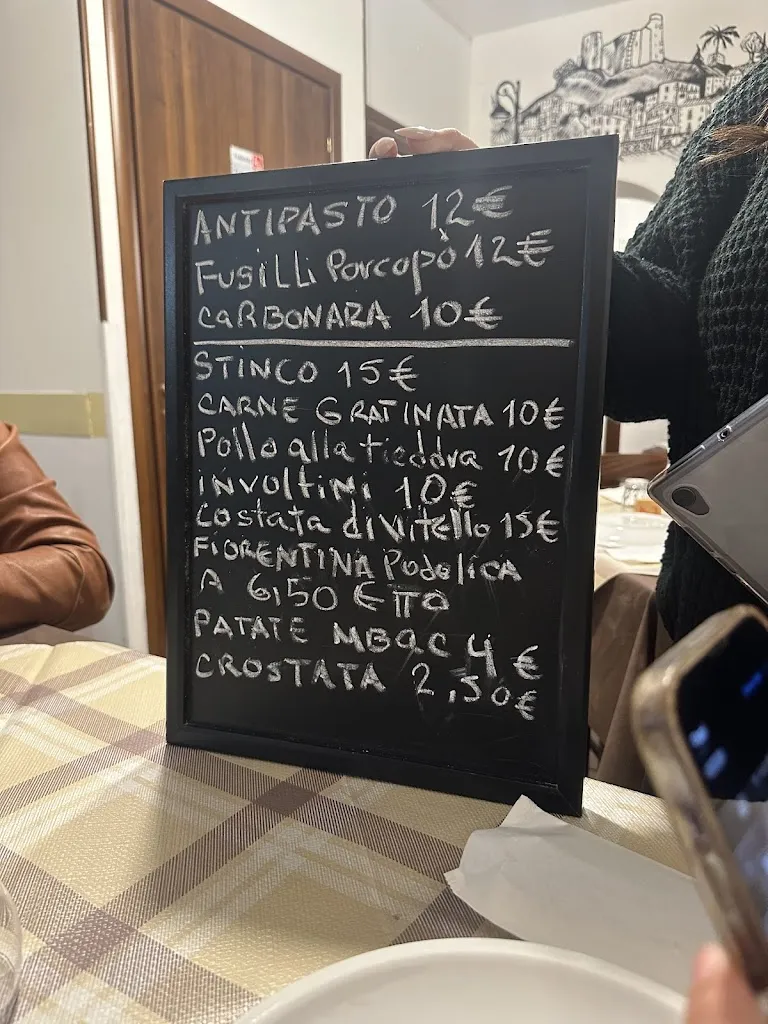 ANTIPASTO 12€
FUSILLI Porcopò 12€
CARBONARA 10€
STINCO 15€
CARNE GRATINATA 10€
Pollo alla tieddra 10€
involtini 10€
Costata di Vitello 15€
FIORENTINA Podolica
A 6,50 € ITO
PATATE MBAC 4€
CROSTATA 2,50€